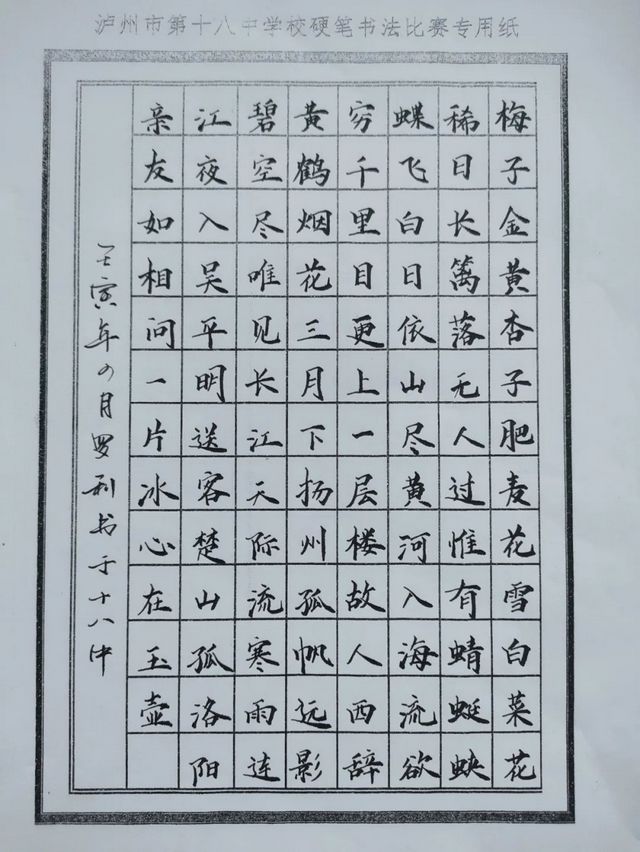 泸州市第十八中学校硬笔书法比赛专用纸
梅子金黄杏子肥麦花雪白菜花
稀日长篱落无人过惟有蜻蜓蛱
蝶飞白日依山尽黄河入海流欲
穷千里目更上一层楼故人西辞
黄鹤烟花三月下扬州孤帆远影
碧空尽唯见长江天际流寒雨连
江夜入吴平明送客楚山孤洛阳
亲友如相问一片冰心在玉壶
壬寅年四月罗利书于十八中